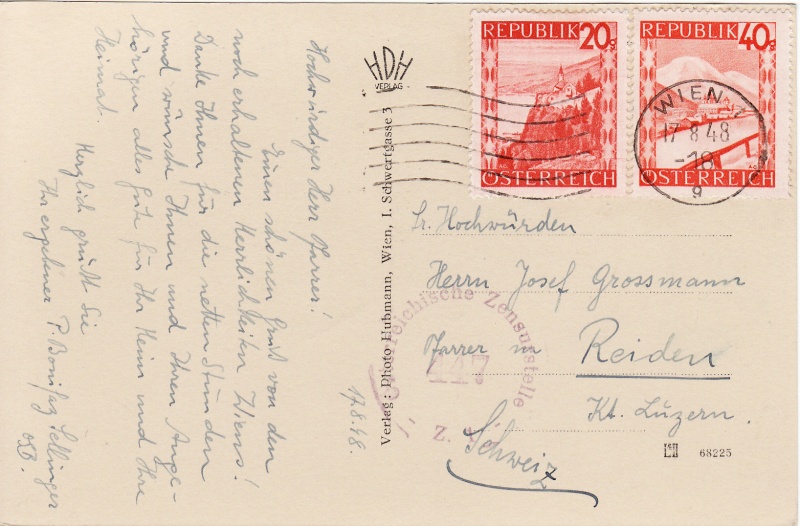 Hochwürdiger Herr Pfarrer!
Einen schönen Gruß von den
noch erhaltenen Herrlichkeiten Wiens!
Danke Ihnen für die netten Stunden
und wünsche Ihnen und Ihren Ange-
hörigen alles Gute für Ihr Heim und Ihre
Heimat.
Herzlich grüßt Sie
Ihr ergebener P. Bonifaz Sellinger
OSB.
17.8.48.
HDH
VERLAG
Verlag: Photo Hubmann, Wien, I. Schwertgasse 3
REPUBLIK 20g
ÖSTERREICH
REPUBLIK 40g
ÖSTERREICH
WIEN
17 8 48
-18
9
Sr. Hochwürden
Herrn Josef Grossmann
Pfarrer in Reiden
Kt. Luzern.
Schweiz
Österreichische Zensurstelle
447
Z.
68225